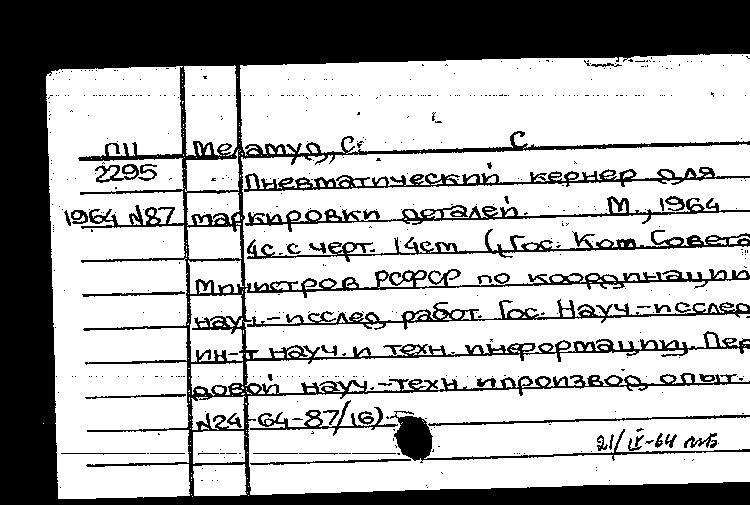 ПII Меламуд, С. С.
2295 Пневматический кернер для
1964 N87 маркировки деталей. М., 1964
4с. с черт. 14см (Гос. Ком. Совета
Министров РСФСР по координации
науч.-исслед. работ. Гос. Науч.-исслед.
ин-т науч. и техн. информации. Пер
довой науч.-техн. и производ. опыт.
N24-64-87/16).-
21/IV-64